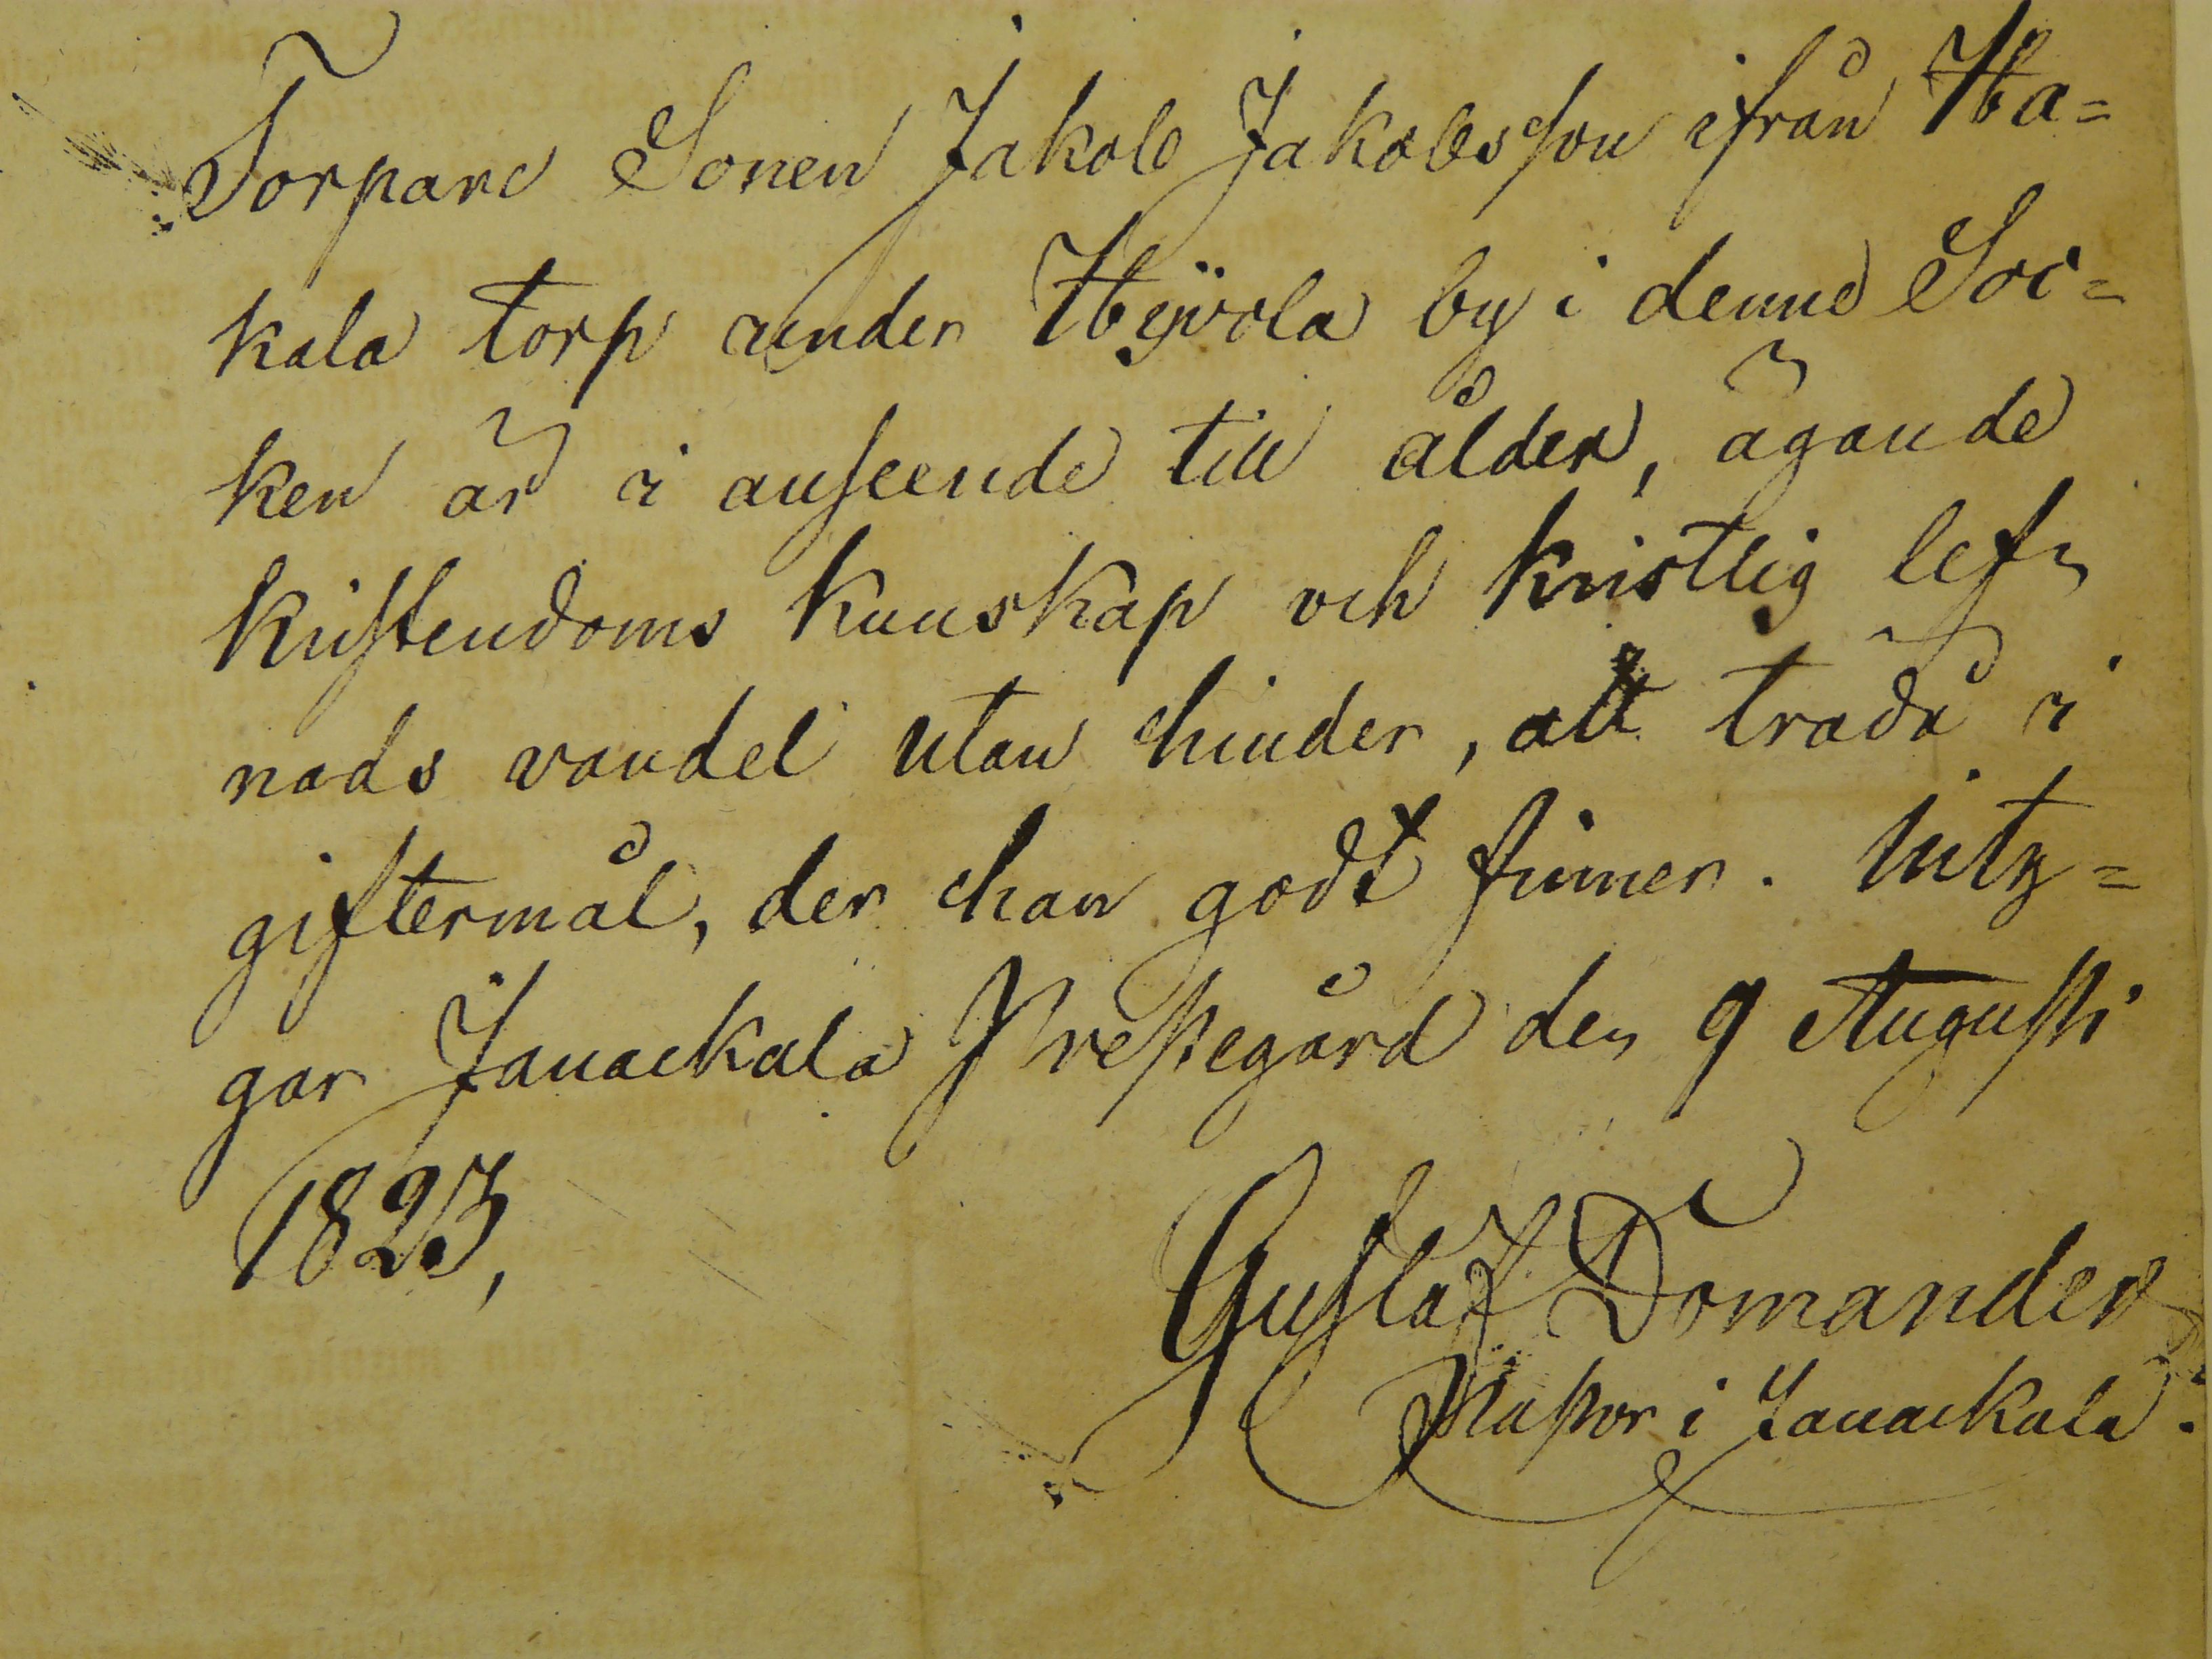 Torpare Sonen Jakob Jakobsson ifrån Ha=
kala torp under Hyvola by i denne Soc=
ken är i anseende till ålder, ägande
kristendoms kunskap och kristlig lef-
nads vandel utan hinder, att träda i
giftermål, der han godt finner. Intÿ=
gar Janackala Prestegård den 9 Augusti
1823,
Gustaf Domander
Pastor i Janackala.